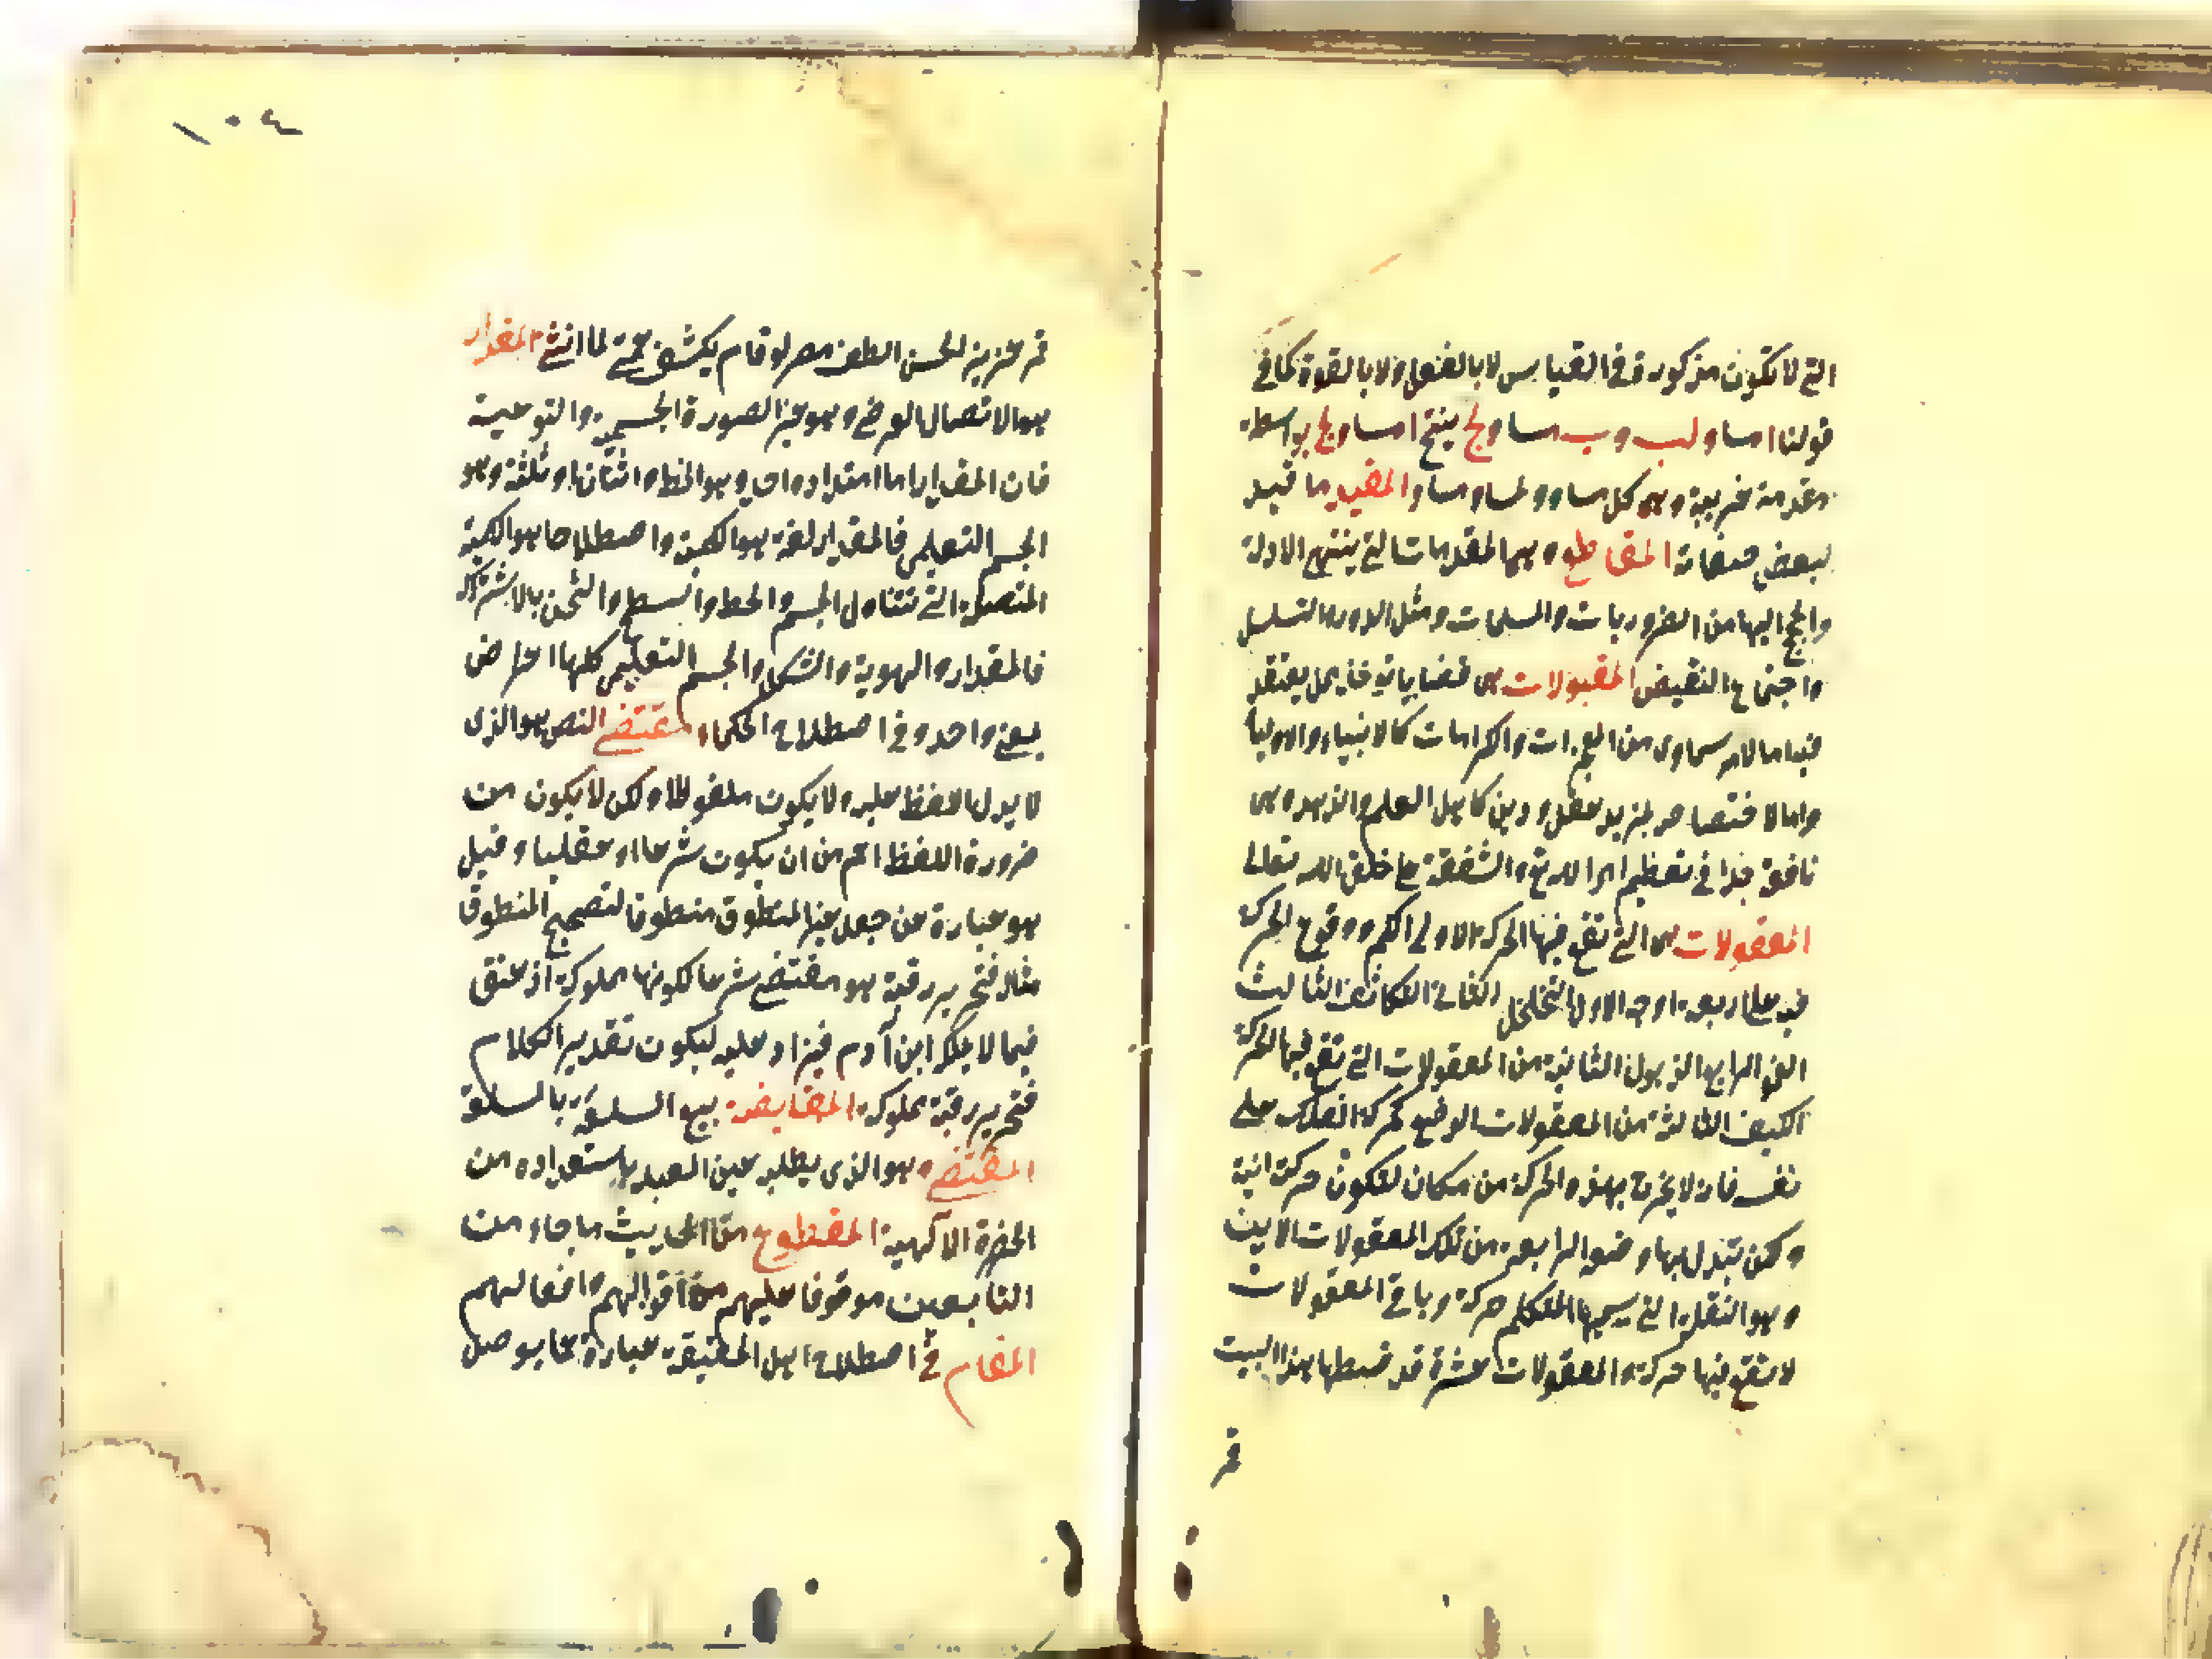 التى لا تكون مذكورة فى القياس لا بالفعل ولا بالقوة كما فى
قولنا ا مساو لب و ب مساو لج ينتج ا مساو لج بواسطة
مقدمة غريبة وهى كل مساو ولمساو مساو المقيد ما قيد
لبعض صفاته المقاطع وهى المقدمات التى ينتهى الادلة
والحجج اليها من الضروريات والمسلمات ومثل الدور والتسلسل
واجتماع النقيض المقبولات هى قضايا تؤخذ ممن يعتقد
فيه اما لامر سماوى من المعجزات والكرامات كالانبياء والاوليا
واما لاختصاصه بمزيد عقل ودين كاهل العلم والزهد وهى
نافعة جدا فى تعظيم امر الله تع والشفقة على خلق الله تعالى
المعقولات هى التى تقع فيها الحركة الاولى الكم ووقوع الحركة
فيه على اربعة اوجه الاول التخلخل الثانى التكاثف الثالث
النمو الرابع الذبول الثانية من المعقولات التى تقع فيها الحركة
الكيف الثالثة من المعقولات الوضع كحركة الفلك على
نفسه فانه لا يخرج بهذه الحركة من مكان لتكون حركته اينية
ولكن تبدل بها وضعه الرابعة من تلك المعقولات الاين
وهو النقلة التى يسميها المتكلم حركة وباقى المعقولات
لا تقع فيها حركة والمعقولات عشرة قد ضبطها هذا البيت
قمر
١٠٤
قمر عزيز الحسن الطف مصره لو قام يكشف غمتى لما انثنى المقدار
هو الاتصال العرضى وهو غير الصورة الجسمية والنوعية
فان المقدار اما امتداد واحد وهو الخط او اثنان او ثلثة وهو
الجسم التعليمى فالمقدار لغة هو الكمية واصطلاحا هو الكمية
المتصلة التى تتناول الجسم والخط والسطح والثخن بالاشتراك
فالمقدار والهوية والشكل والجسم التعليمى كلها اعراض
بمعنى واحد وفى اصطلاح الحكماء مقتضى النص هو الذى
لا يدل اللفظ عليه ولا يكون ملفوظا ولكن لا يكون من
ضرورة اللفظ اعم من ان يكون شرعا او عقليا وقيل
هو عبارة عن جعل غير المنطوق منطوقا لتصحيح المنطوق
مثاله فتحرير رقبة هو مقتضى شرعا لكونها مملوكة اذ لا عتق
فيما لا يملك ابن آدم فيزاد عليه ليكون تقدير الكلام
فتحرير رقبة مملوكة المقايضة بيع السلعة بالسلعة
المقتضى وهو الذى يطلب عين العبد باستعداده من
الحضرة الآلهية المقطوع من الحديث ما جاء من
التابعين موقوفا عليهم من اقوالهم وافعالهم
المقام فى اصطلاح اهل الحقيقة عبارة عما يوصل